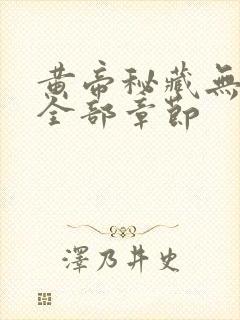 黄帝秘藏無
全部章節
澤乃井史